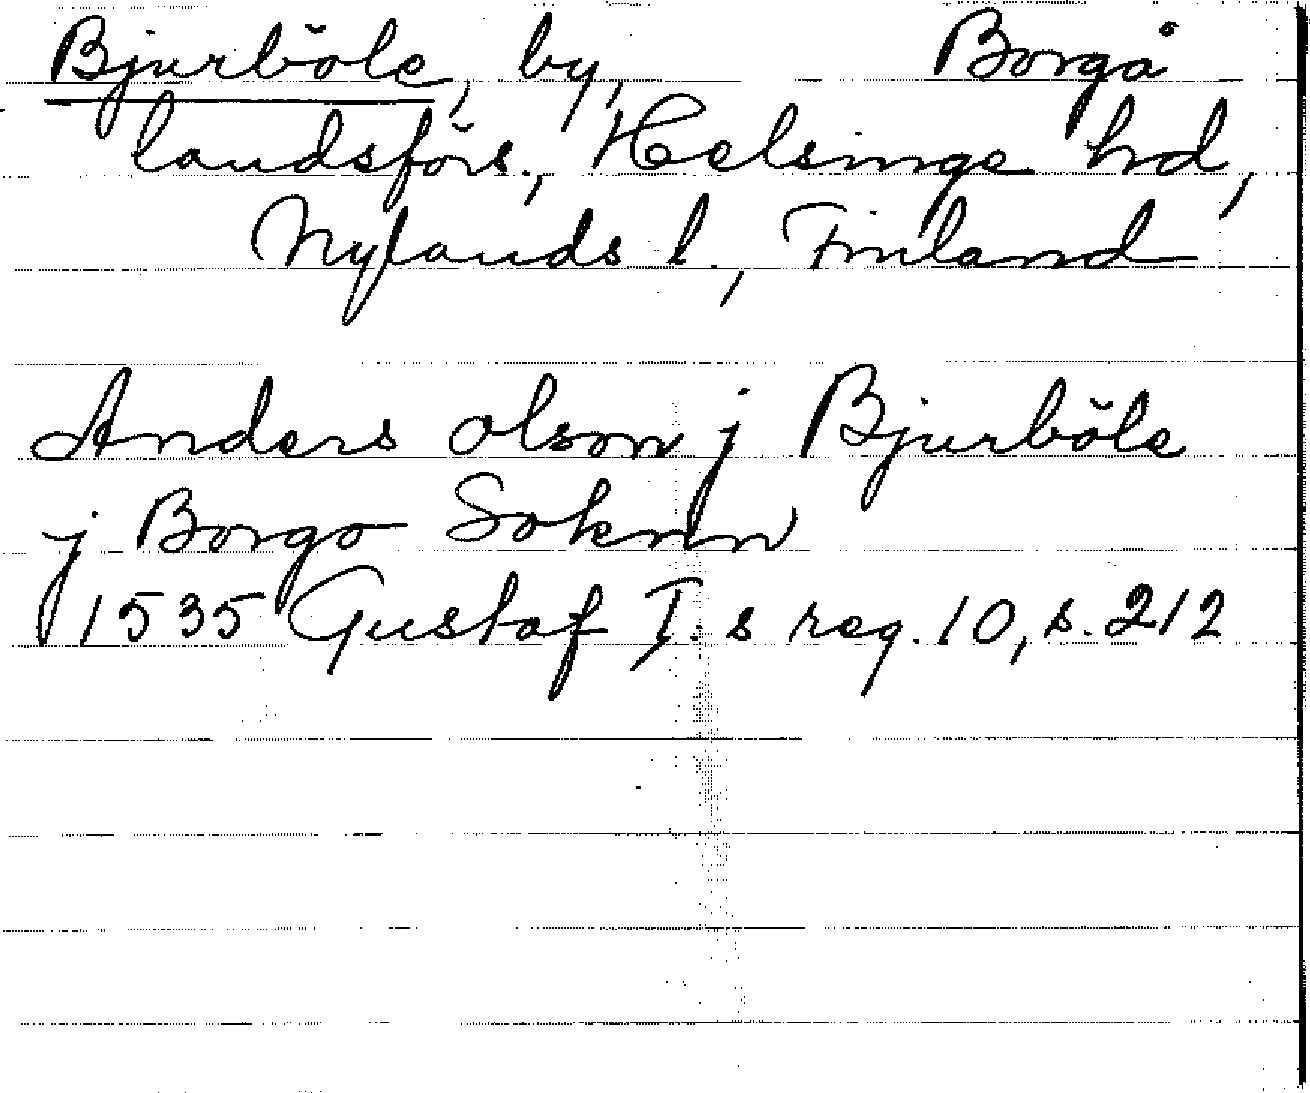 Bjurböle, by, Borgå
landsförs., Helsinge hd,
Nylands l., Finland
Anders olson j Bjurböle
j Borgo Soknn
1535 Gustaf I:s reg. 10, s. 212